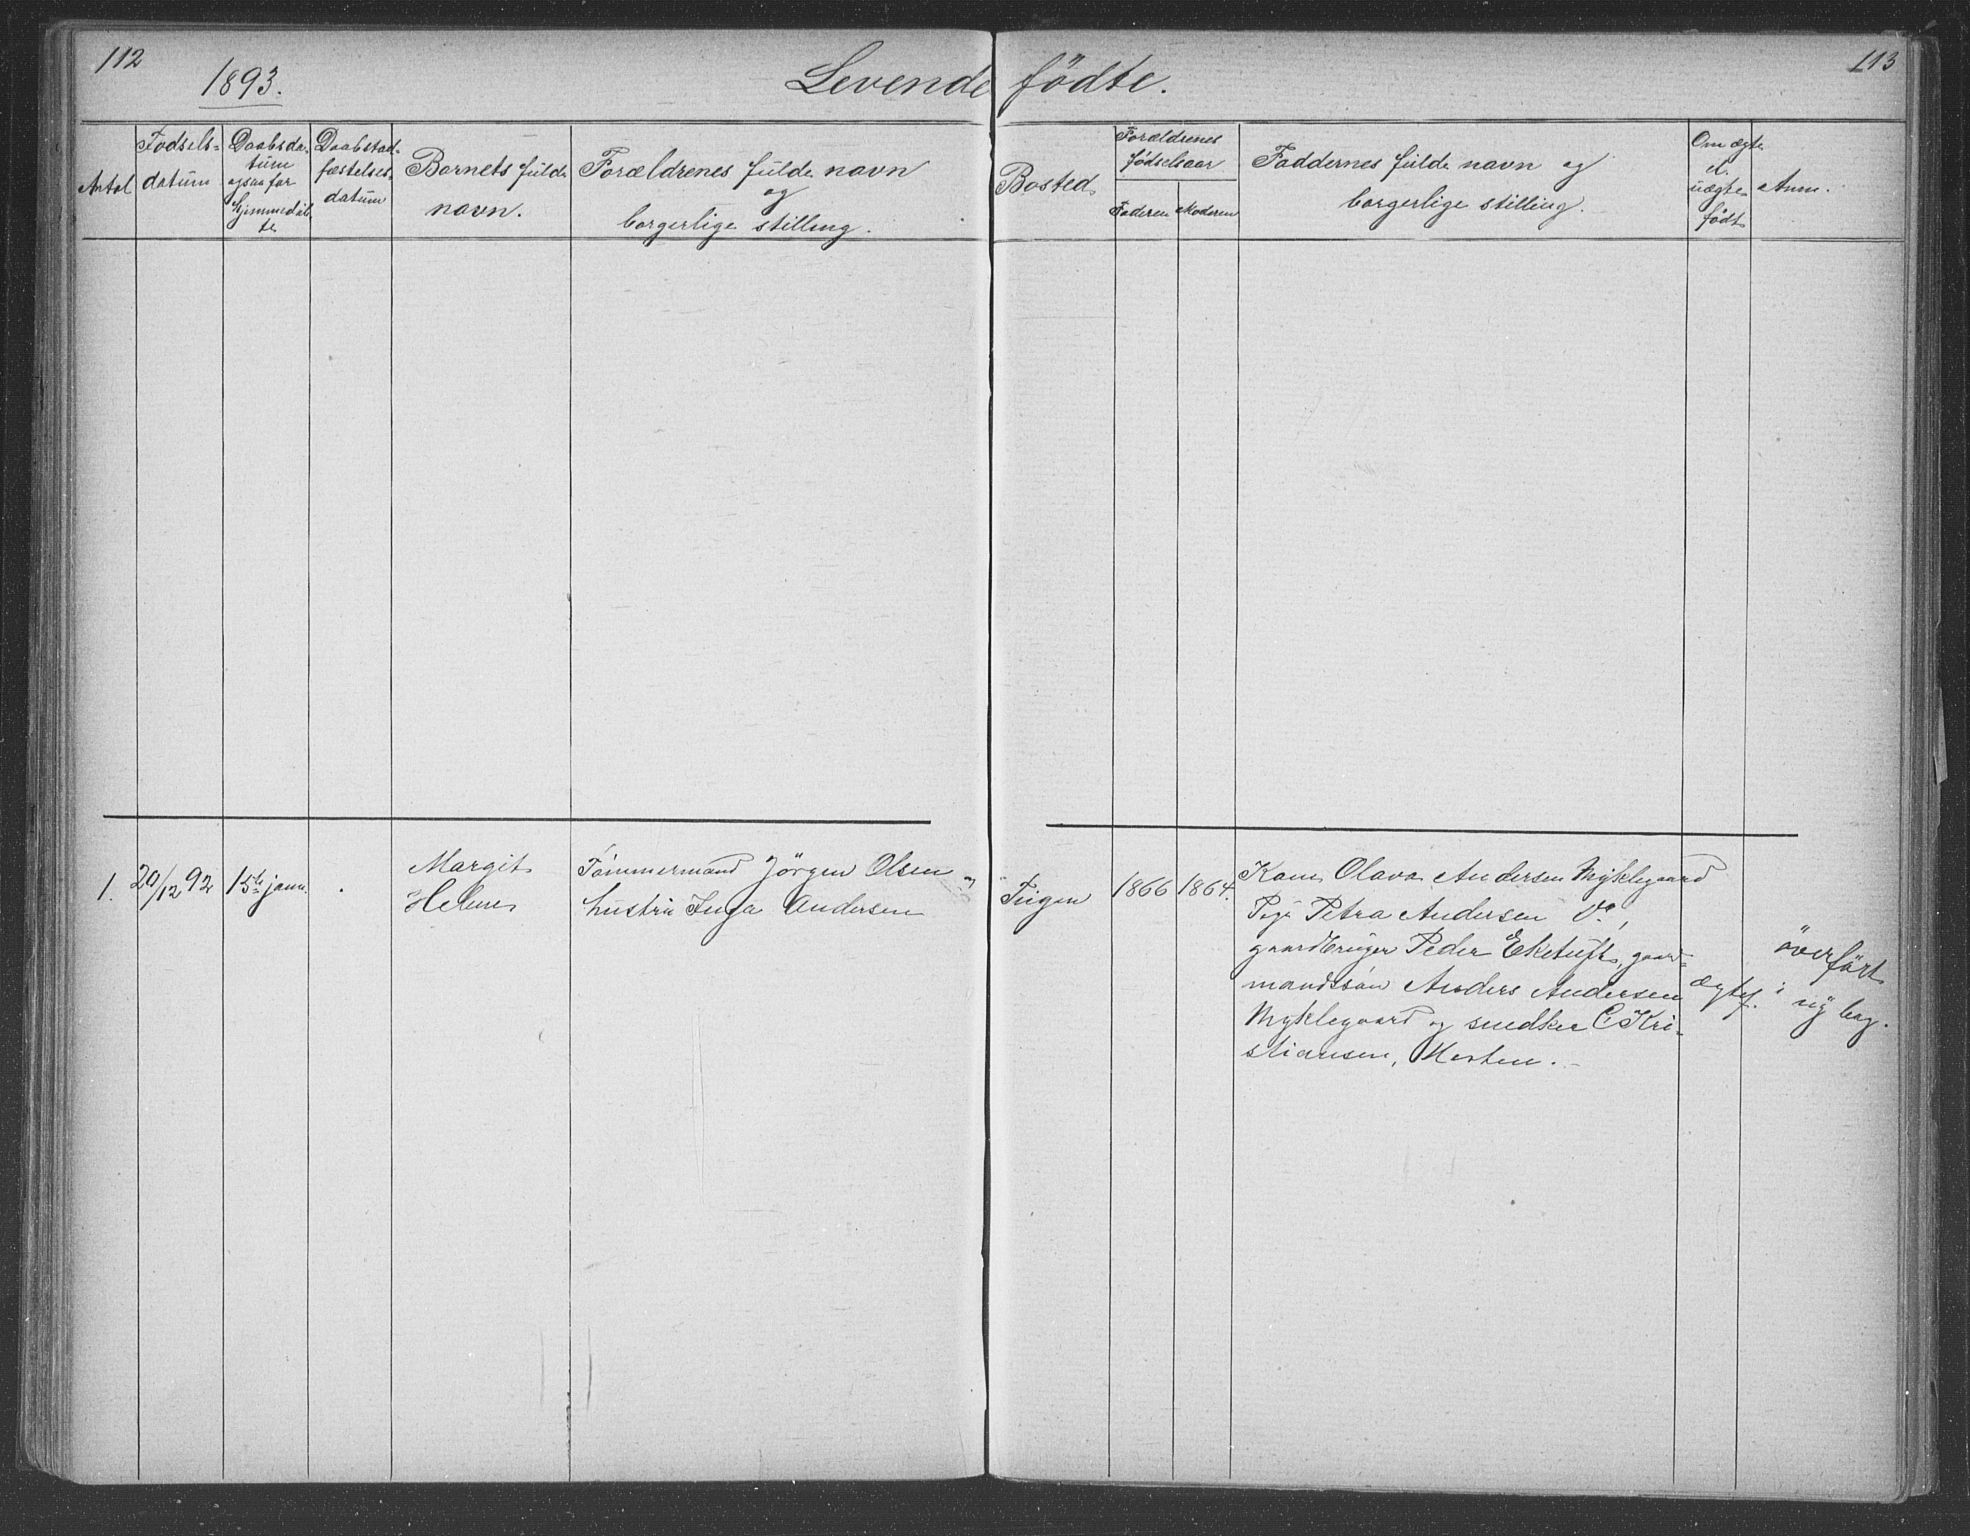 112
1893.
Levende fødte.
113
Antal
Fødsels-
datum
Daabsda-
tum
ogsaa for
hjemmedøb-
te
Daabstad-
fæstelses-
datum
Barnets fulde
navn.
Forældrenes fulde navn
og
borgerlige stilling.
Bosted
Forældrenes
fødselsaar
Faderen
Moderen
Faddernes fulde navn og
borgerlige stilling.
Om ægte
el.
uægte
født
Anm.
1.
20/12 92
15de janu.
Margit
Helene
Tømmermand Jörgen Olsen og
hustru Inga Andersen
Teigen
1866
1864.
Kone Olava Andersen Myklegaard
Pige Petra Andersen Do,
gaardbruger Peder Eketuft, gaard-
mandssøn Anders Andersen
Myklegaard og snedker C Kri-
stiansen, Horten.
ægtef.
överfört
i ny bog.